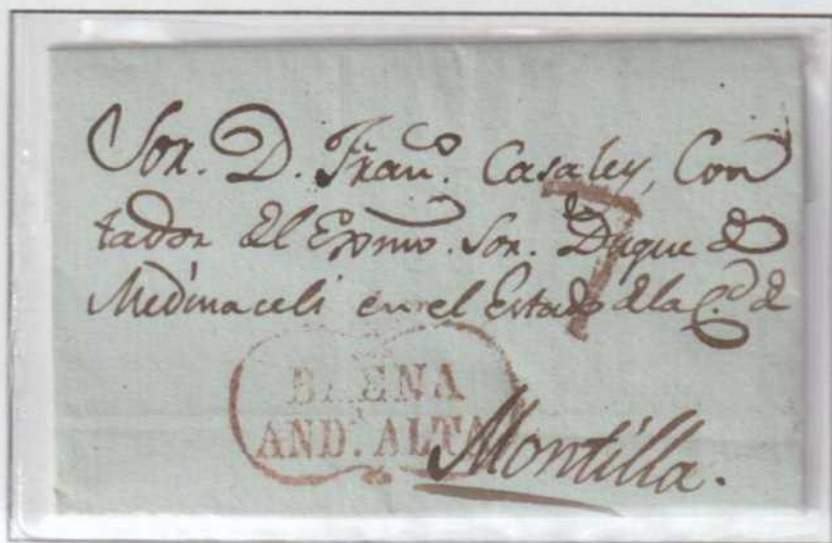 Sor. D. Franco. Casaley, Con
tador del Exmo. Sor. Duque de
Medinaceli en el Estado de la C.d de
7
BAENA
AND. ALTA
Montilla.